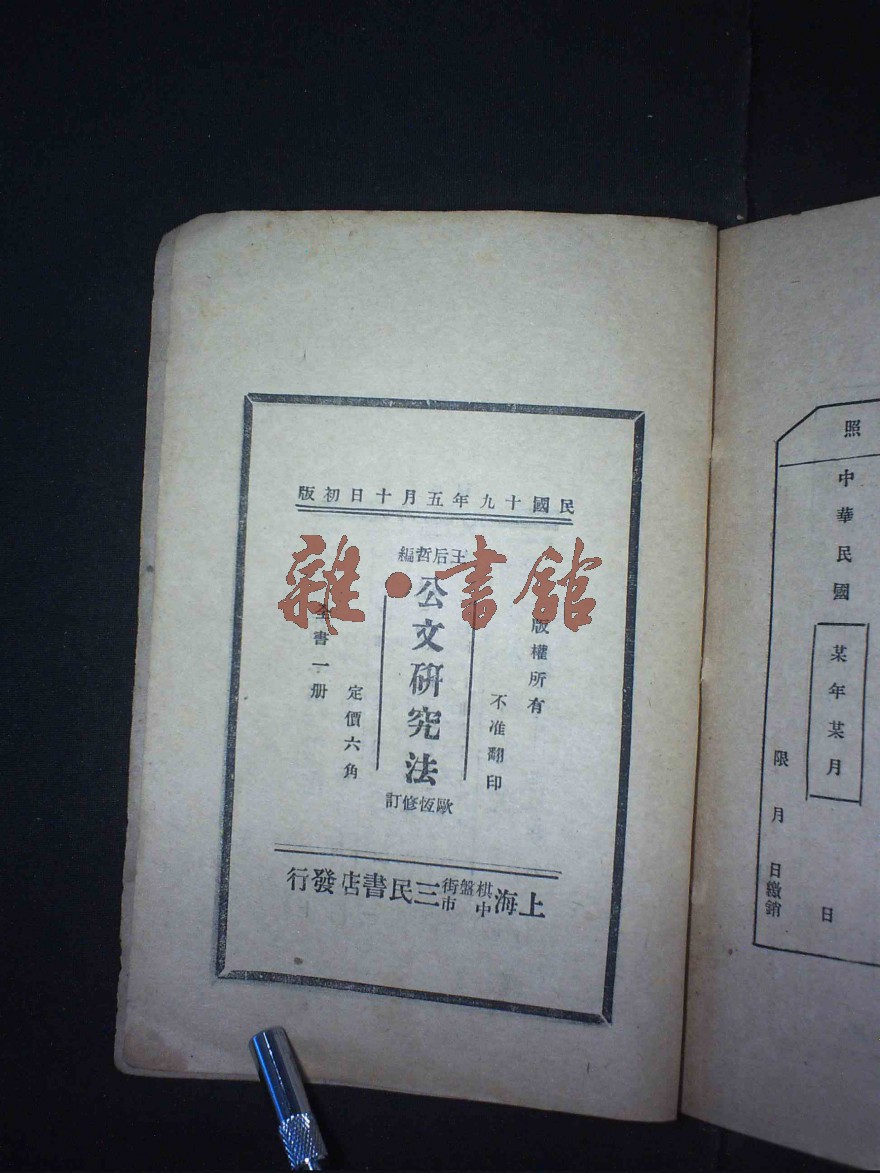 民國十九年五月十日初版
版權所有
不准翻印
王后哲編
公文研究法
歐恆修訂
定價六角
全書一册
上海棋盤街中市三民書店發行
雜·書館
照
中華民國
某年某月
日
限 月 日繳銷